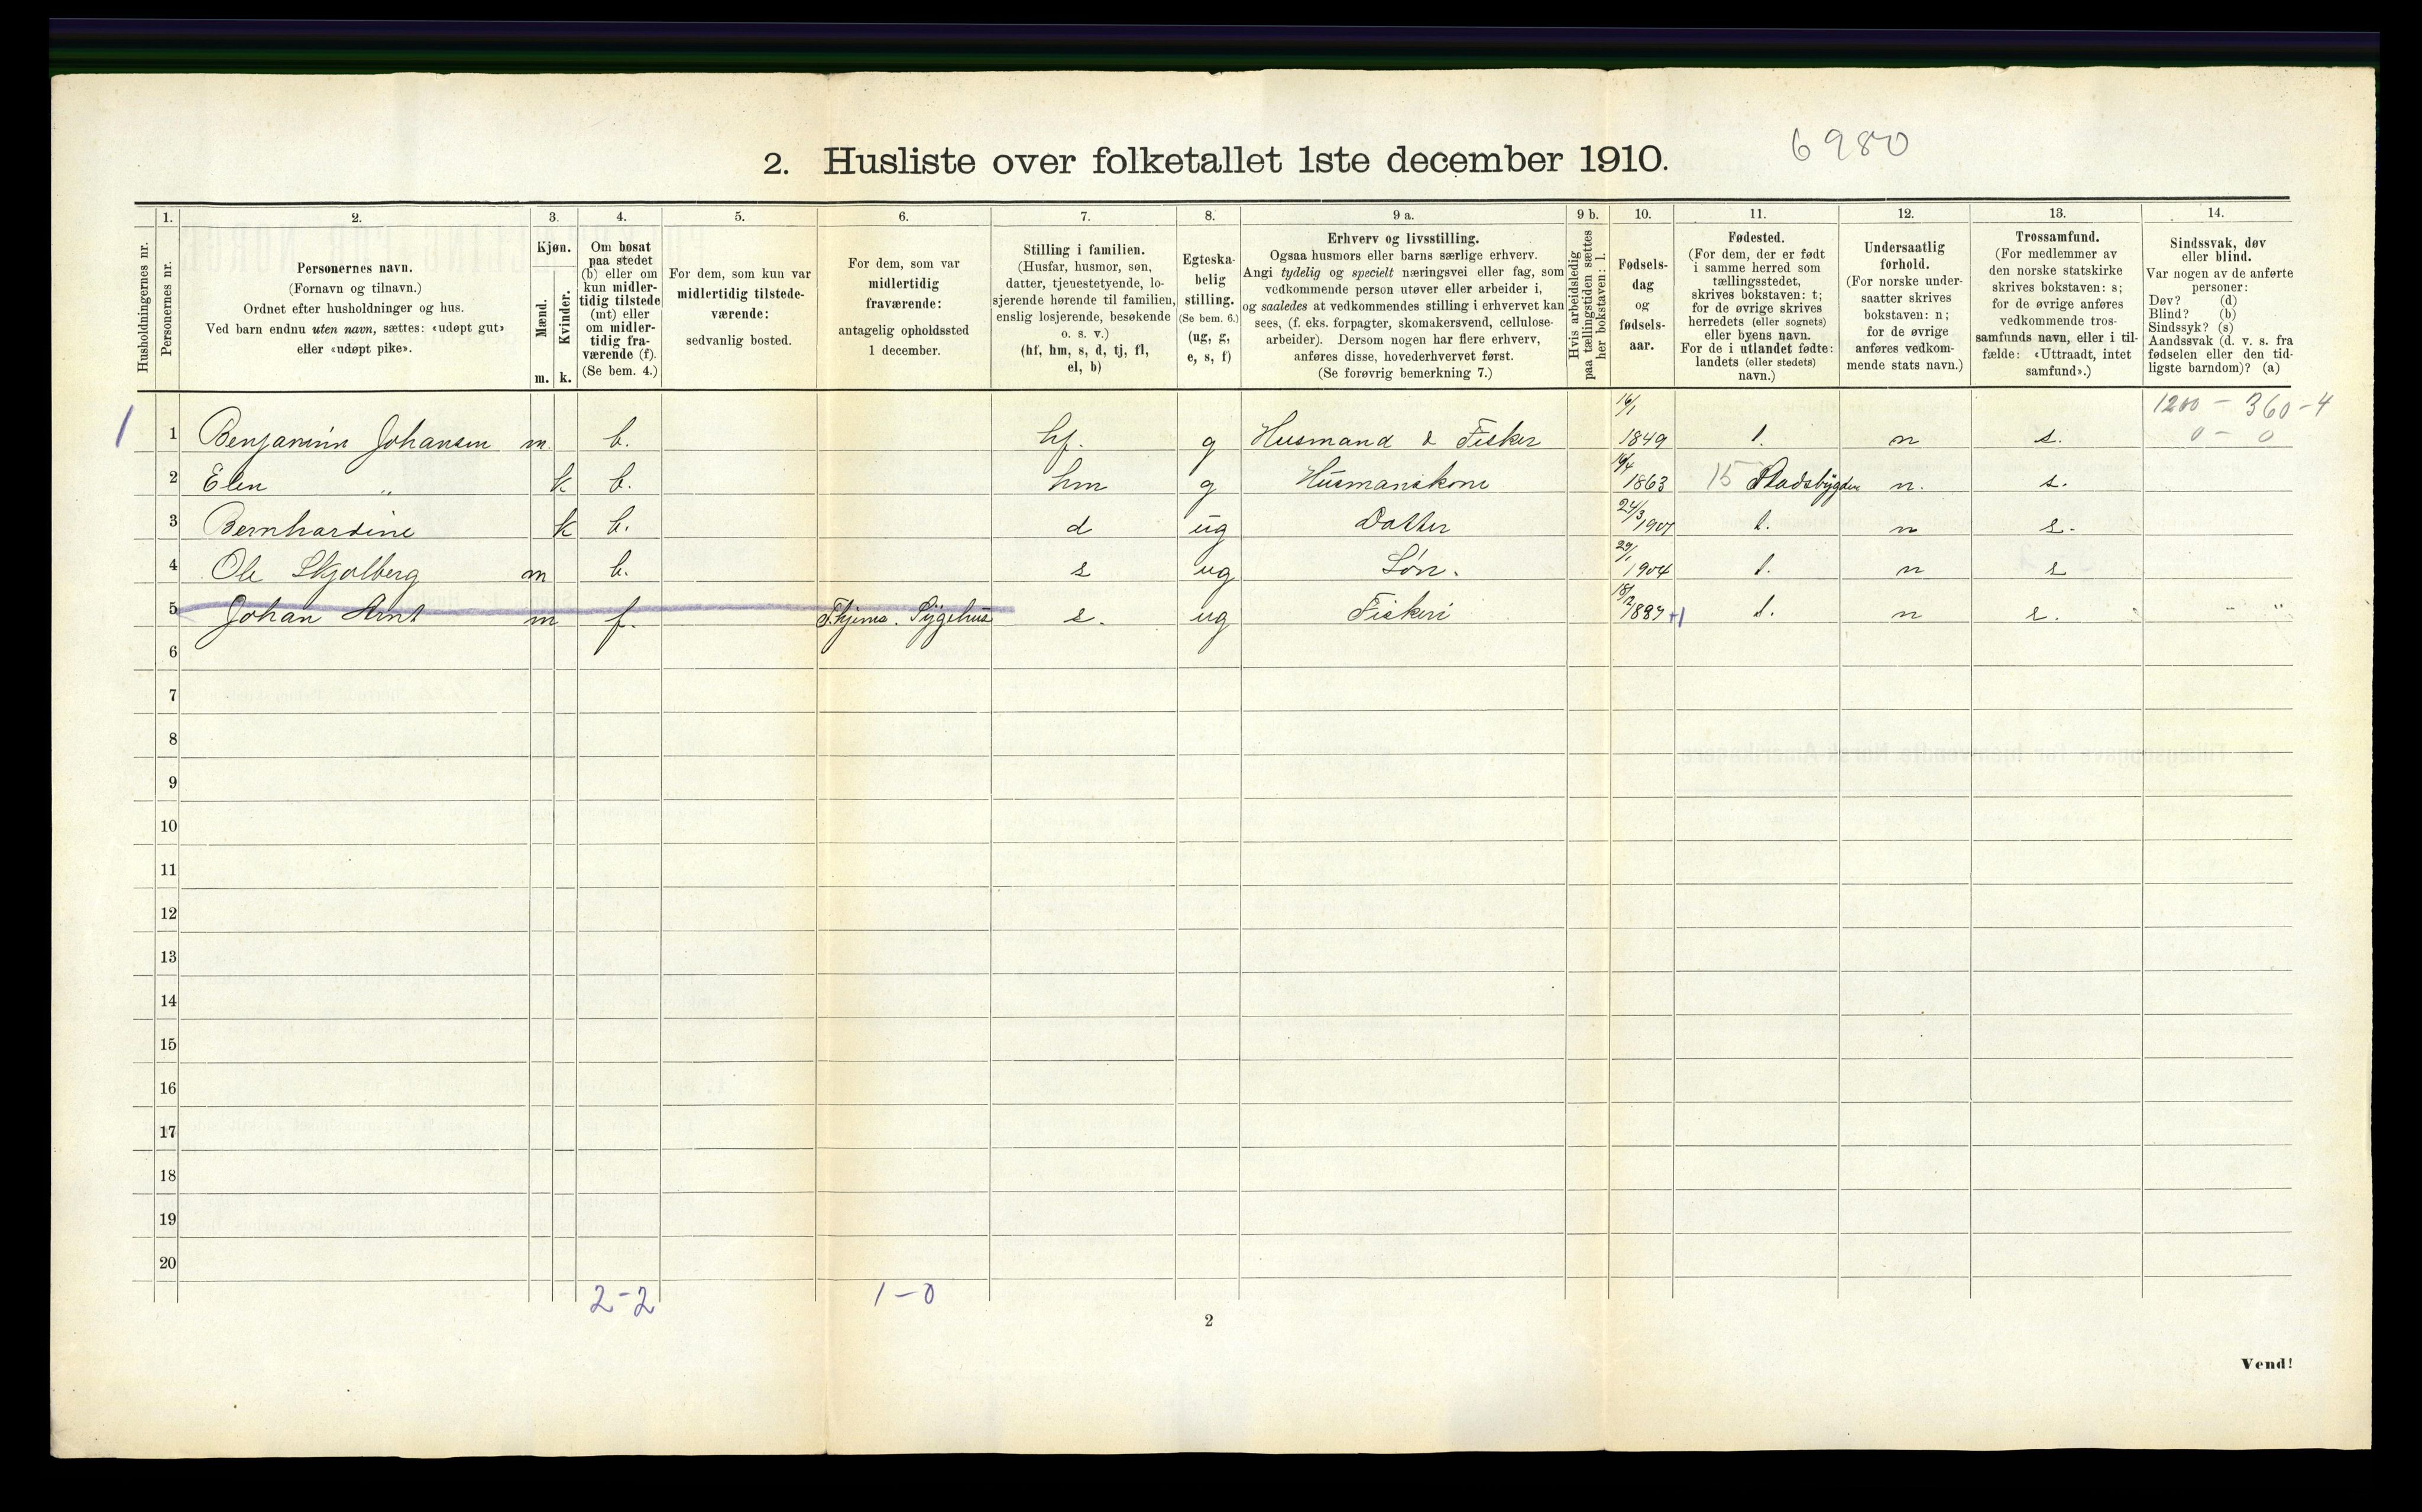 6980
2. Husliste over folketallet 1ste december 1910.
1. 2. 3. 4. 5. 6. 7. 8. 9 a. 9 b. 10. 11. 12. 13. 14.
Husholdningernes nr.
Personernes nr.
Personernes navn.
(Fornavn og tilnavn.)
Ordnet efter husholdninger og hus.
Ved barn endnu uten navn, sættes: «udøpt gut»
eller «udøpt pike».
Kjøn.
Mænd.
Kvinder.
m. k.
Om bosat
paa stedet
(b) eller om
kun midler-
tidig tilstede
(mt) eller
om midler-
tidig fra-
værende (f).
(Se bem. 4.)
For dem, som kun var
midlertidig tilstede-
værende:
sedvanlig bosted.
For dem, som var
midlertidig
fraværende:
antagelig opholdssted
1 december.
Stilling i familien.
(Husfar, husmor, søn,
datter, tjenestetyende, lo-
sjerende hørende til familien,
enslig losjerende, besøkende
o. s. v.)
(hf, hm, s, d, tj, fl,
el, b)
Egteska-
belig
stilling.
(Se bem. 6.)
(ug, g,
e, s, f)
Erhverv og livsstilling.
Ogsaa husmors eller barns særlige erhverv.
Angi tydelig og specielt næringsvei eller fag, som
vedkommende person utøver eller arbeider i,
og saaledes at vedkommendes stilling i erhvervet kan
sees, (f. eks. forpagter, skomakersvend, cellulose-
arbeider). Dersom nogen har flere erhverv,
anføres disse, hovederhvervet først.
(Se forøvrig bemerkning 7.)
Hvis arbeidsledig
paa tællingstiden sættes
her bokstaven: l.
Fødsels-
dag
og
fødsels-
aar.
Fødested.
(For dem, der er født
i samme herred som
tællingsstedet,
skrives bokstaven: t;
for de øvrige skrives
herredets (eller sognets)
eller byens navn.
For de i utlandet fødte:
landets (eller stedets)
navn.)
Undersaatlig
forhold.
(For norske under-
saatter skrives
bokstaven: n;
for de øvrige
anføres vedkom-
mende stats navn.)
Trossamfund.
(For medlemmer av
den norske statskirke
skrives bokstaven: s;
for de øvrige anføres
vedkommende tros-
samfunds navn, eller i til-
fælde: «Uttraadt, intet
samfund».)
Sindssvak, døv
eller blind.
Var nogen av de anførte
personer:
Døv? (d)
Blind? (b)
Sindssyk? (s)
Aandssvak (d. v. s. fra
fødselen eller den tid-
ligste barndom)? (a)
1200 - 360 - 4
0 - 0
1 1 Benjamin Johansen m. b. hf. g Husmand & Fisker 16/1 1849 t. n s.
2 Elen " k b. hm g Husmanskone 16/4 1863 15 Stadsbygden n. s.
3 Bernhardine k b. d ug Datter 24/3 1907 t. n s.
4 Ole Skjolberg m b. s ug Søn. 29/1 1904 t. n s
5 Johan Arnt m f. T.hjems. Sygehus s. ug Fiskeri 18/2 1887 +1 t. n s. " "
6
7
8
9
10
11
12
13
14
15
16
17
18
19
20
2-2 1-0
2
Vend!